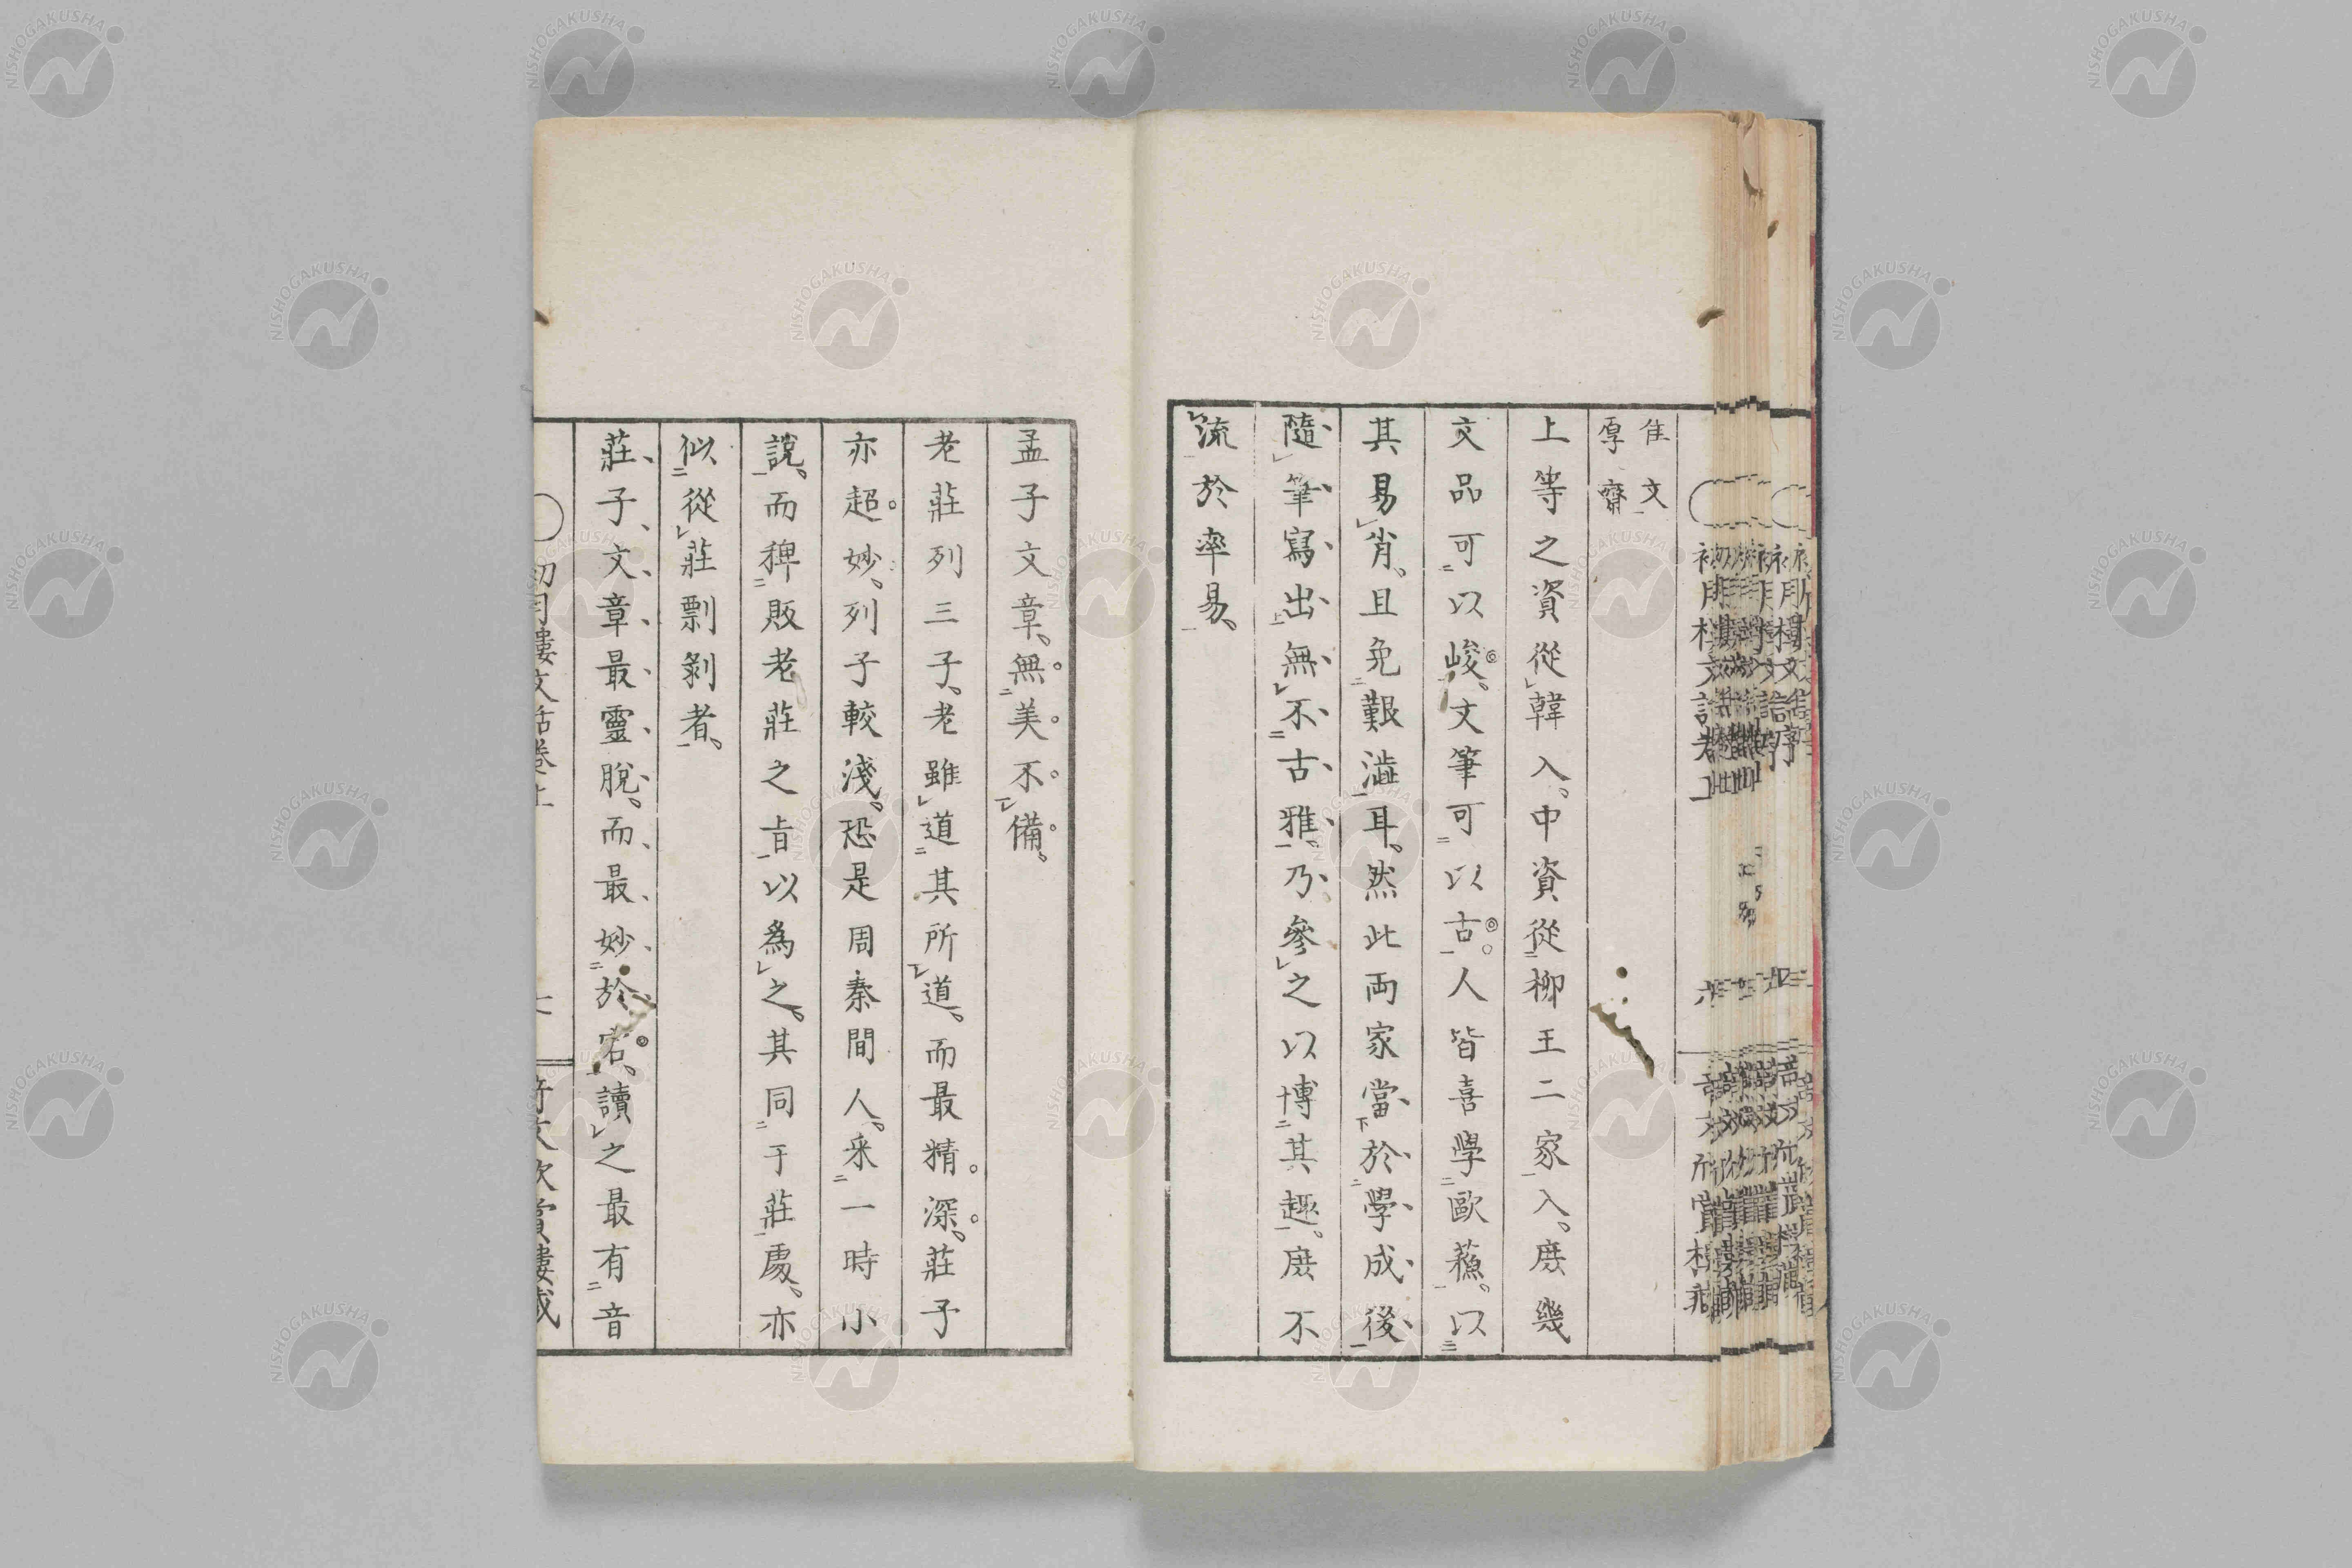 隹文
厚齋
上等之資從韓入中資從柳王二家入庶幾
文品可以峻文筆可以古人皆喜學歐蘓以
其易肖且免艱澁耳然此両家當於學成後
隨筆寫出無不古雅乃參之以博其趣庶不
流於率易
孟子文章無美不備
老莊列三子老雖道其所道而最精深莊子
亦超妙列子較淺恐是周秦間人采一時小
說而稗販老莊之旨以為之其同于莊處亦
似從莊剽剝者
莊子文章最靈脫而最妙於宕讀之最有音